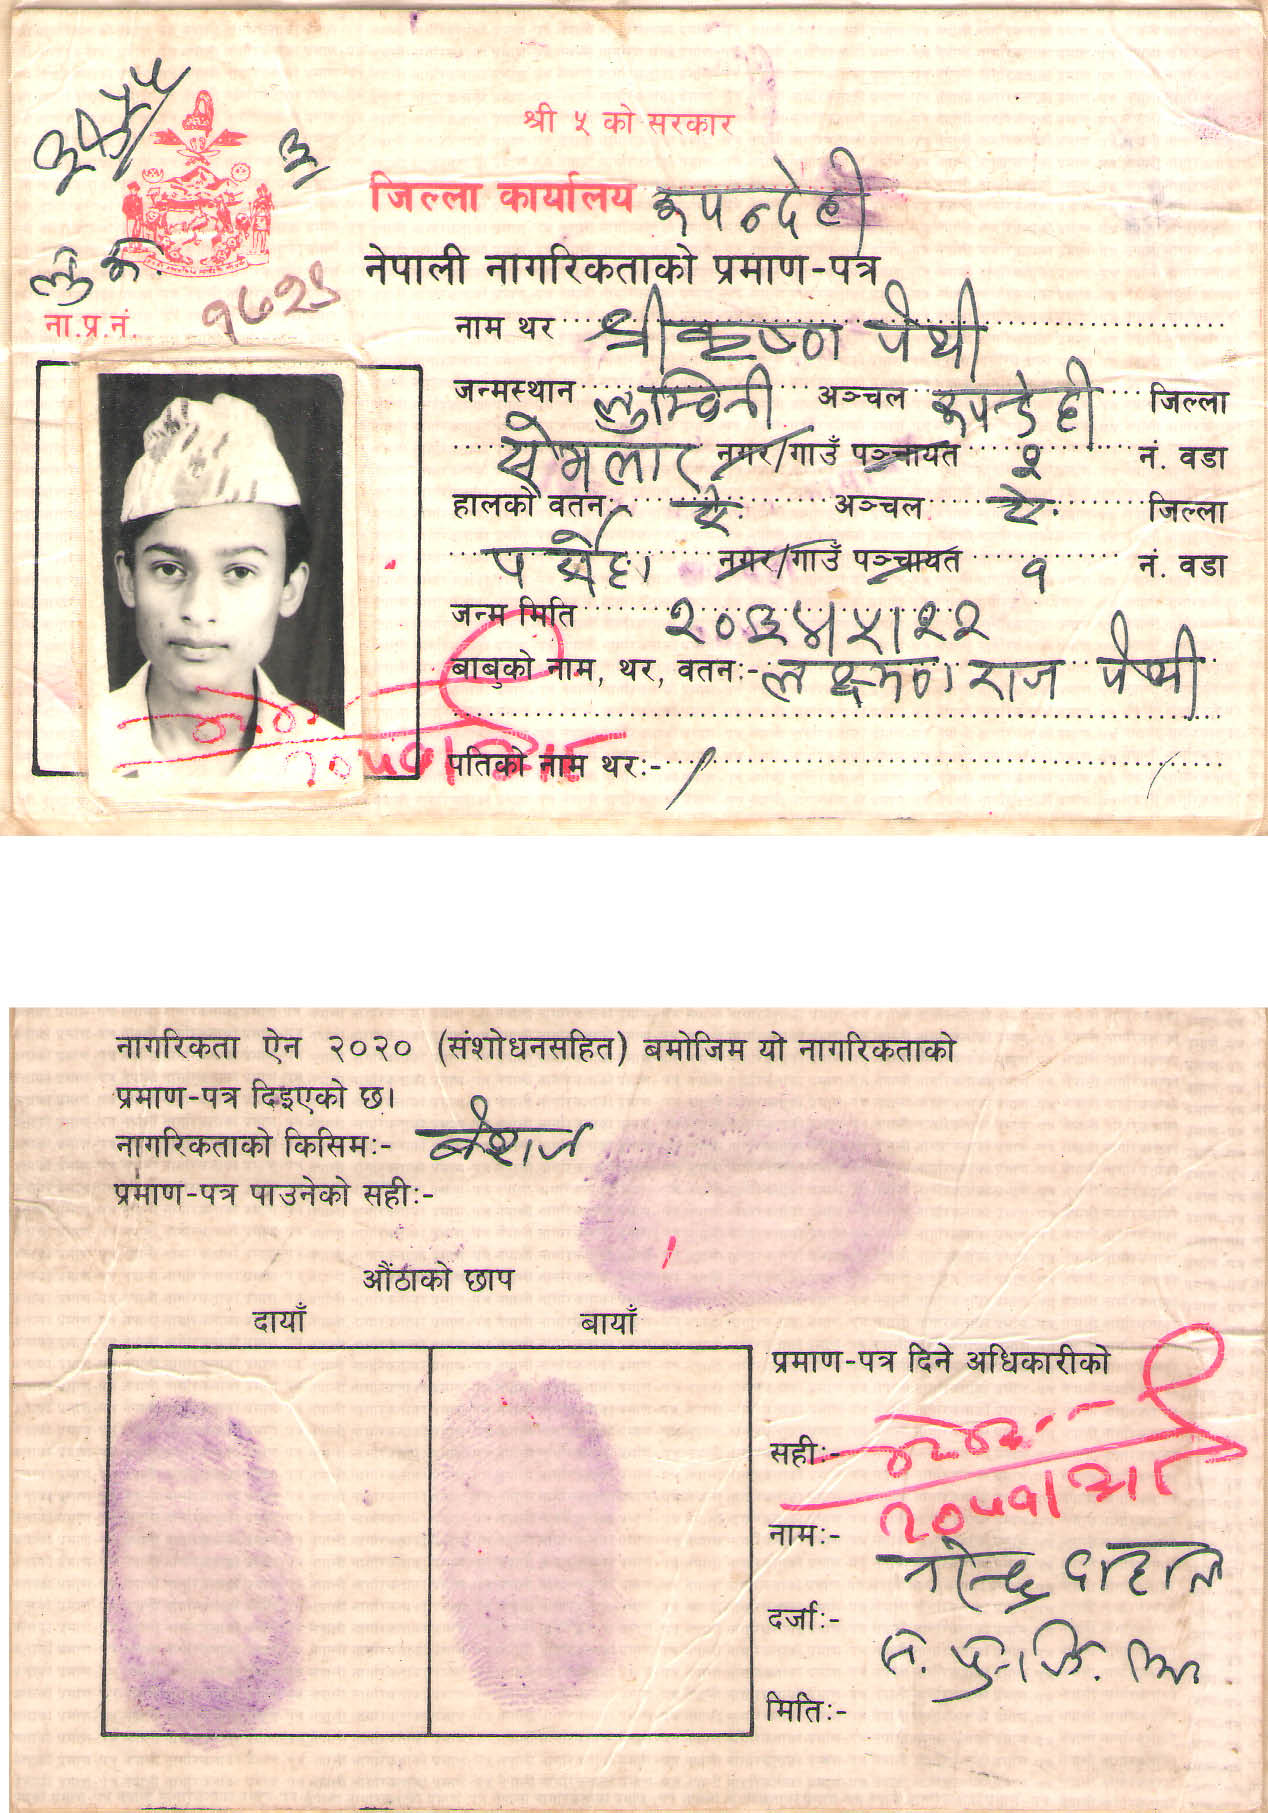 श्री ५ को सरकार
जिल्ला कार्यालय रुपन्देही
नेपाली नागरिकताको प्रमाण-पत्र
ना.प्र.नं.
नाम थर श्रीकृष्ण पंथी
जन्मस्थान लुम्बिनी अञ्चल रुपन्देही जिल्ला
सेमलार नगर/गाउँ पञ्चायत २ नं. वडा
हालको वतन ऐ. अञ्चल ऐ. जिल्ला
नगर/गाउँ पञ्चायत १ नं. वडा
जन्म मिति २०३४।५।२२
बाबुको नाम, थर, वतन:- लक्ष्मण राज पंथी
पतिको नाम थर:-
नागरिकता ऐन २०२० (संशोधनसहित) बमोजिम यो नागरिकताको
प्रमाण-पत्र दिइएको छ।
नागरिकताको किसिम:- वंशज
प्रमाण-पत्र पाउनेको सही:-
औंठाको छाप
दायाँ बायाँ
प्रमाण-पत्र दिने अधिकारीको
सही:-
नाम:- नरेन्द्र दाहाल
दर्जा:-
मिति:-